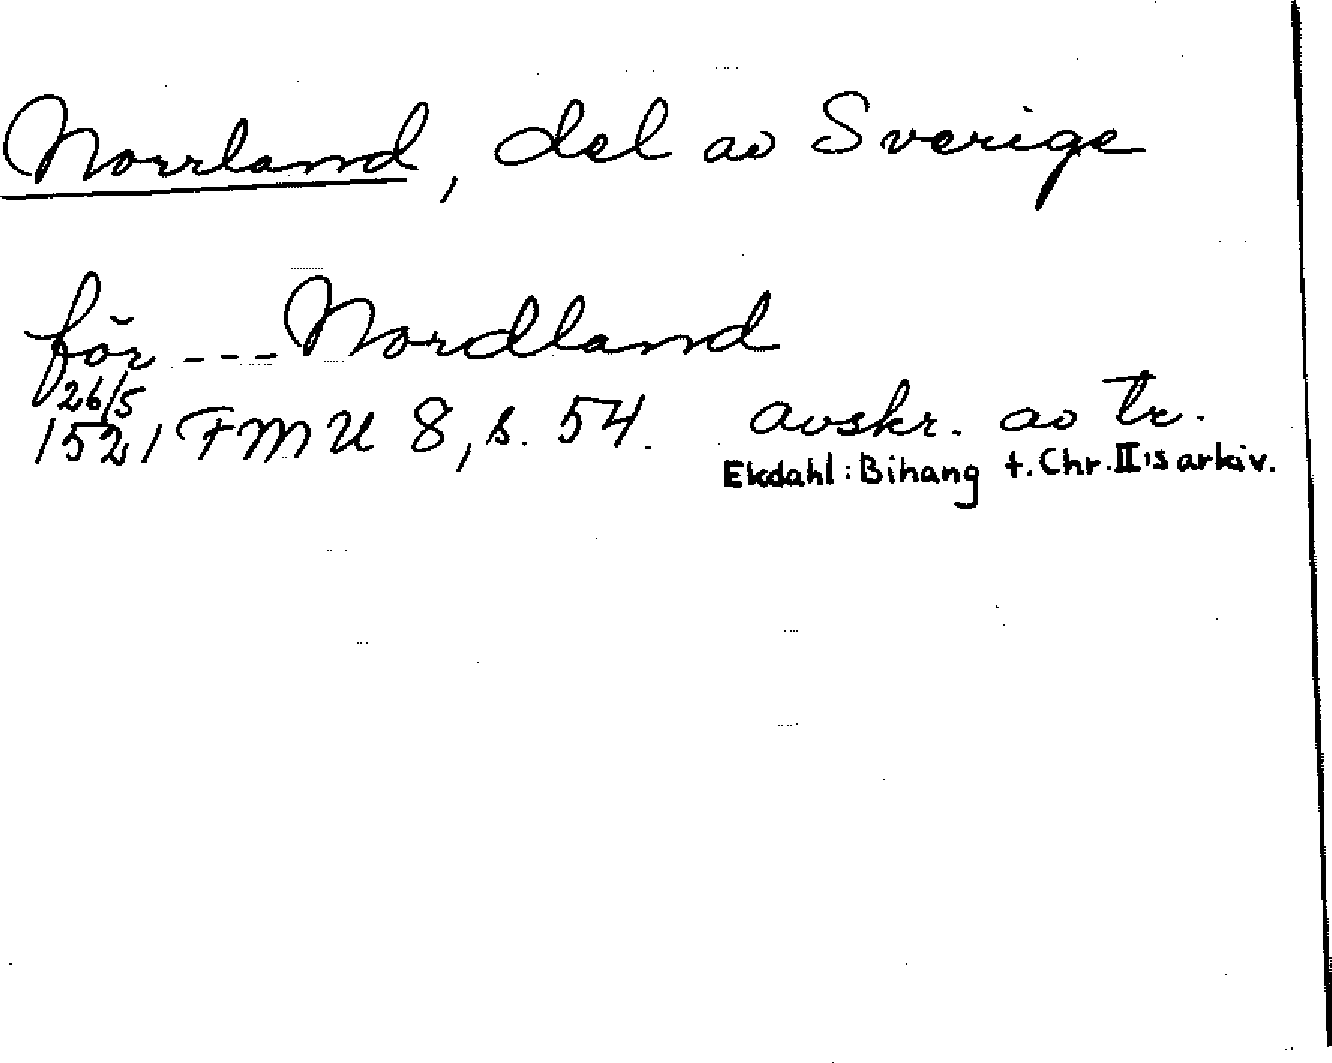 Norrland, del av Sverige
för --- Nordland
26/5
1521 FMU 8, s. 54. avskr. av tr.
Ekdahl: Bihang t. Chr. II:s arkiv.